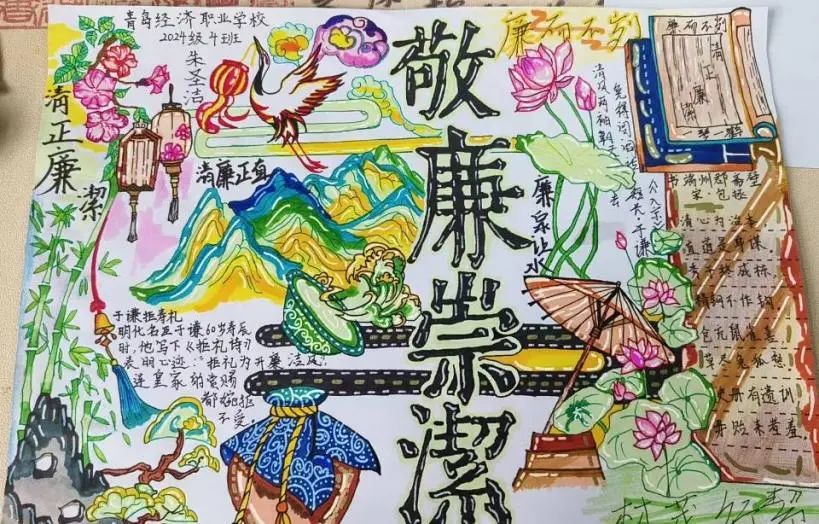 青岛经济职业学校
2024级4班
朱圣洁
清正廉潔
清廉正直
敬廉崇潔
于谦拒寿礼
明代名臣于谦60岁寿辰
时,他写下《拒礼诗》
表明心迹:"拒礼为开廉洁风
进皇家的赏赐
都婉拒
不受
清风两袖朝天去
免得闾阎话短长
于谦
《入京》
廉泉让水
清正廉潔
书端州郡斋壁
宋·包拯
清心为治本
直道是身谋
秀干终成栋
精钢不作钩
仓充鼠雀喜
草尽兔狐愁
史册有遗训
毋贻来者羞